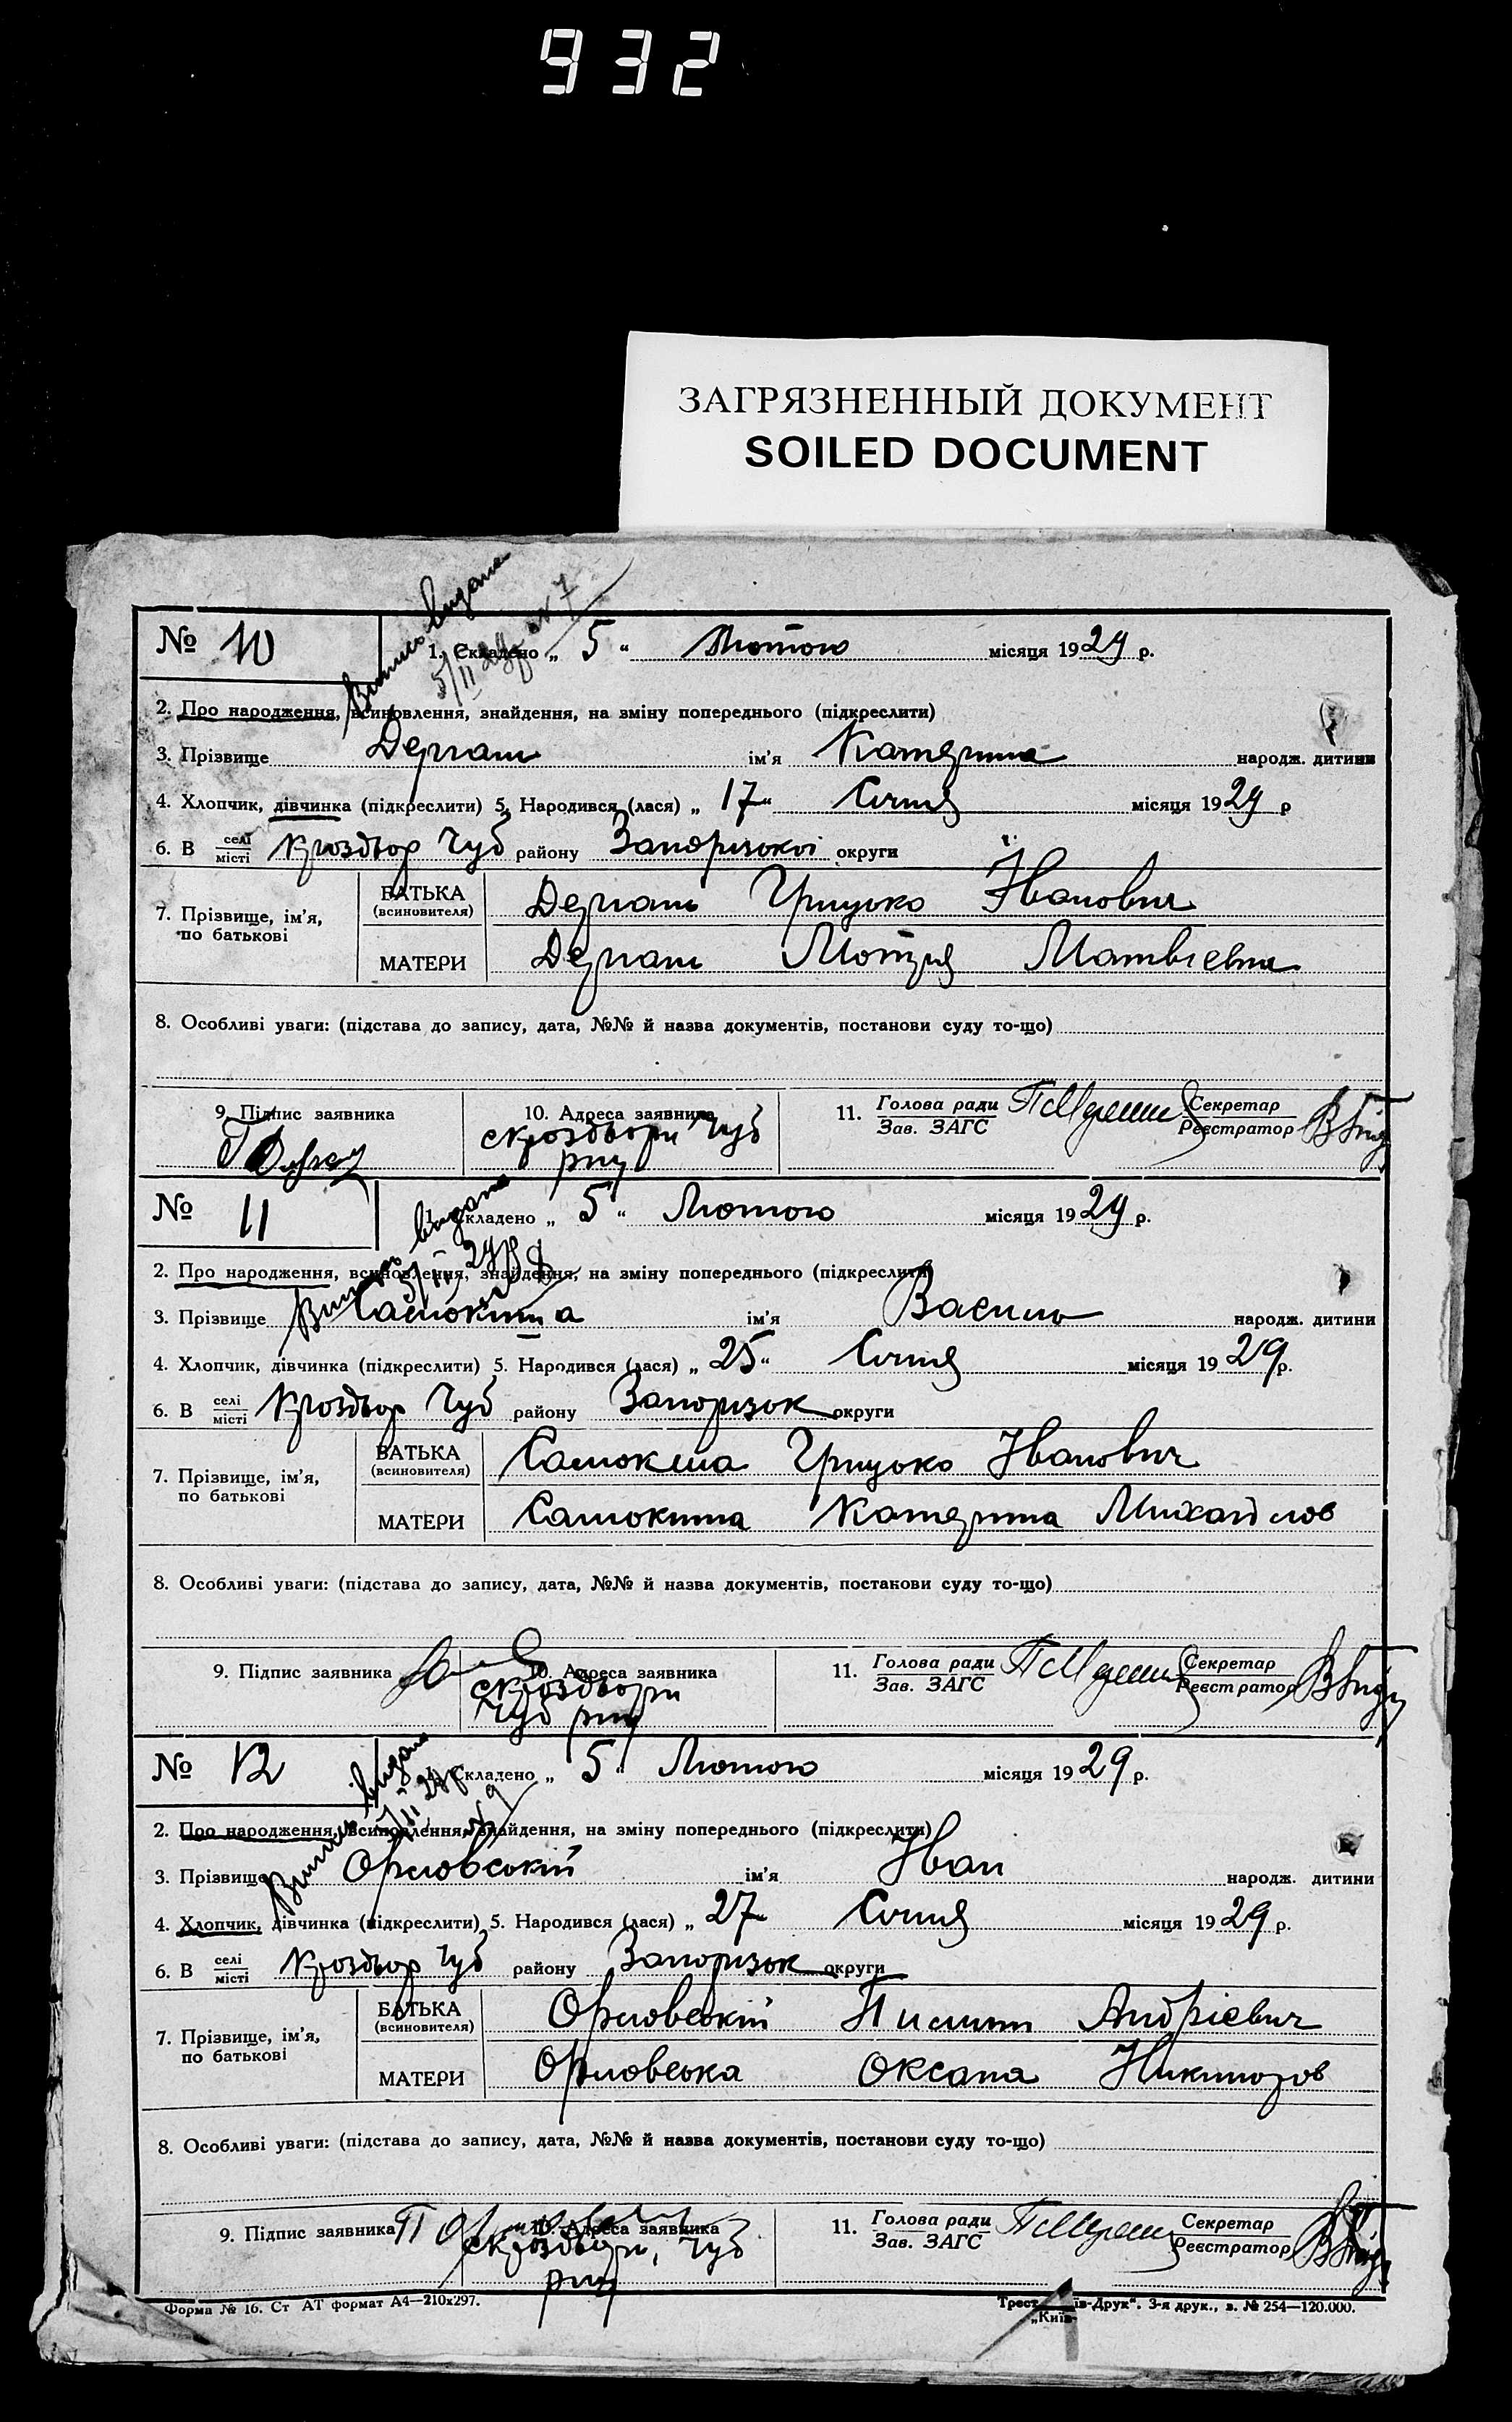 932
ЗАГРЯЗНЕННЫЙ ДОКУМЕНТ
SOILED DOCUMENT
№ 10
Випись видана
5/II 29р № 7
1. Складено „ 5 “ Лютого місяця 1929 р.
2. Про народження, всиновлення, знайдення, на зміну попереднього (підкреслити)
3. Прізвище ім'я Катерина народж. дитини
4. Хлопчик, дівчинка (підкреслити) 5. Народився (лася) „ 17 “ Січня місяця 1929 р
6. В селі місті Кроздвор Чуб району Запорізької округи
7. Прізвище, ім'я, по батькові
БАТЬКА (всиновителя) Грицько Іванович
МАТЕРИ Мотря Матвієвна
8. Особливі уваги: (підстава до запису, дата, №№ й назва документів, постанови суду то-що)
9. Підпис заявника
10. Адреса заявника
Чуб
рну
11. Голова ради Зав. ЗАГС
Секретар Реєстратор
№ 11
Випись видана
5/II 29р № 8
1. Складено „ 5 “ Лютого місяця 1929 р.
2. Про народження, всиновлення, знайдення, на зміну попереднього (підкреслити)
3. Прізвище Самокиша ім'я Василь народж. дитини
4. Хлопчик, дівчинка (підкреслити) 5. Народився (лася) „ 25 “ Січня місяця 1929 р.
6. В селі місті Кроздвор Чуб району Запорізьк округи
7. Прізвище, ім'я, по батькові
БАТЬКА (всиновителя) Самокиша Грицько Іванович
МАТЕРИ Самокиша Катерина Михайлов
8. Особливі уваги: (підстава до запису, дата, №№ й назва документів, постанови суду то-що)
9. Підпис заявника
10. Адреса заявника
Чуб рну
11. Голова ради Зав. ЗАГС
Секретар Реєстратор
№ 12
Випись видана
5/II 29р № 9
1. Складено „ 5 “ Лютого місяця 1929 р.
2. Про народження, всиновлення, знайдення, на зміну попереднього (підкреслити)
3. Прізвище Орловській ім'я Іван народж. дитини
4. Хлопчик, дівчинка (підкреслити) 5. Народився (лася) „ 27 Січня місяця 1929 р.
6. В селі місті Кроздвор Чуб району Запорізьк округи
7. Прізвище, ім'я, по батькові
БАТЬКА (всиновителя) Орловській Пилип Андрієвич
МАТЕРИ Орловська Оксана Никифоров
8. Особливі уваги: (підстава до запису, дата, №№ й назва документів, постанови суду то-що)
9. Підпис заявника
10. Адреса заявника
Чуб
рну
11. Голова ради Зав. ЗАГС
Секретар Реєстратор
Форма № 16. Ст АТ формат А4—210х297.
Трест їв-Друк“. 3-я друк., з. № 254—120.000.
„Київ-